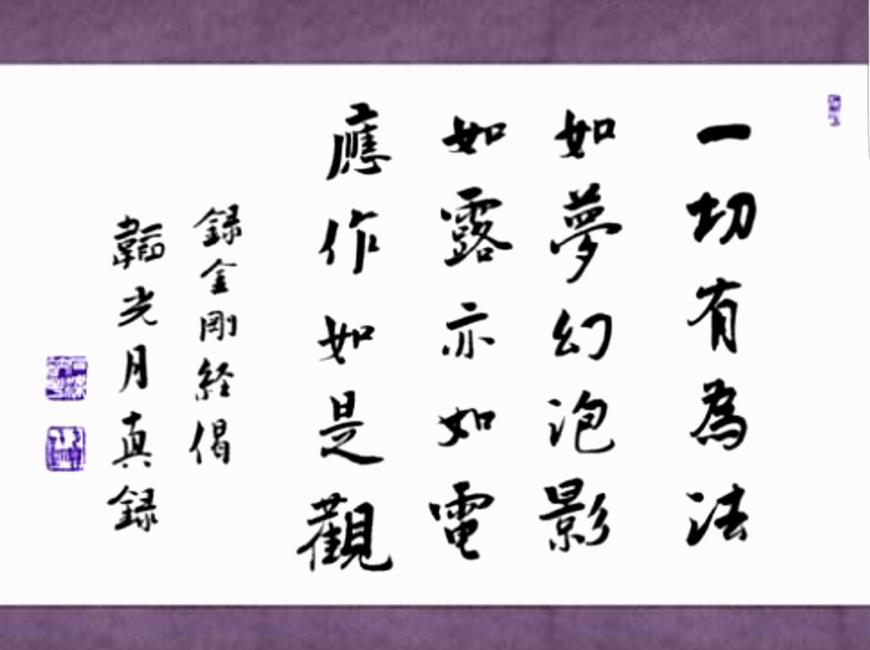 一切有為法
如夢幻泡影
如露亦如電
應作如是觀
録金剛経偈
韜光月真録